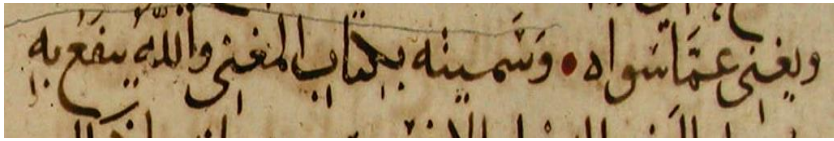 ويغني عمَّا سواه • وَسَّمىته بكتاب المغني والله ينفع به